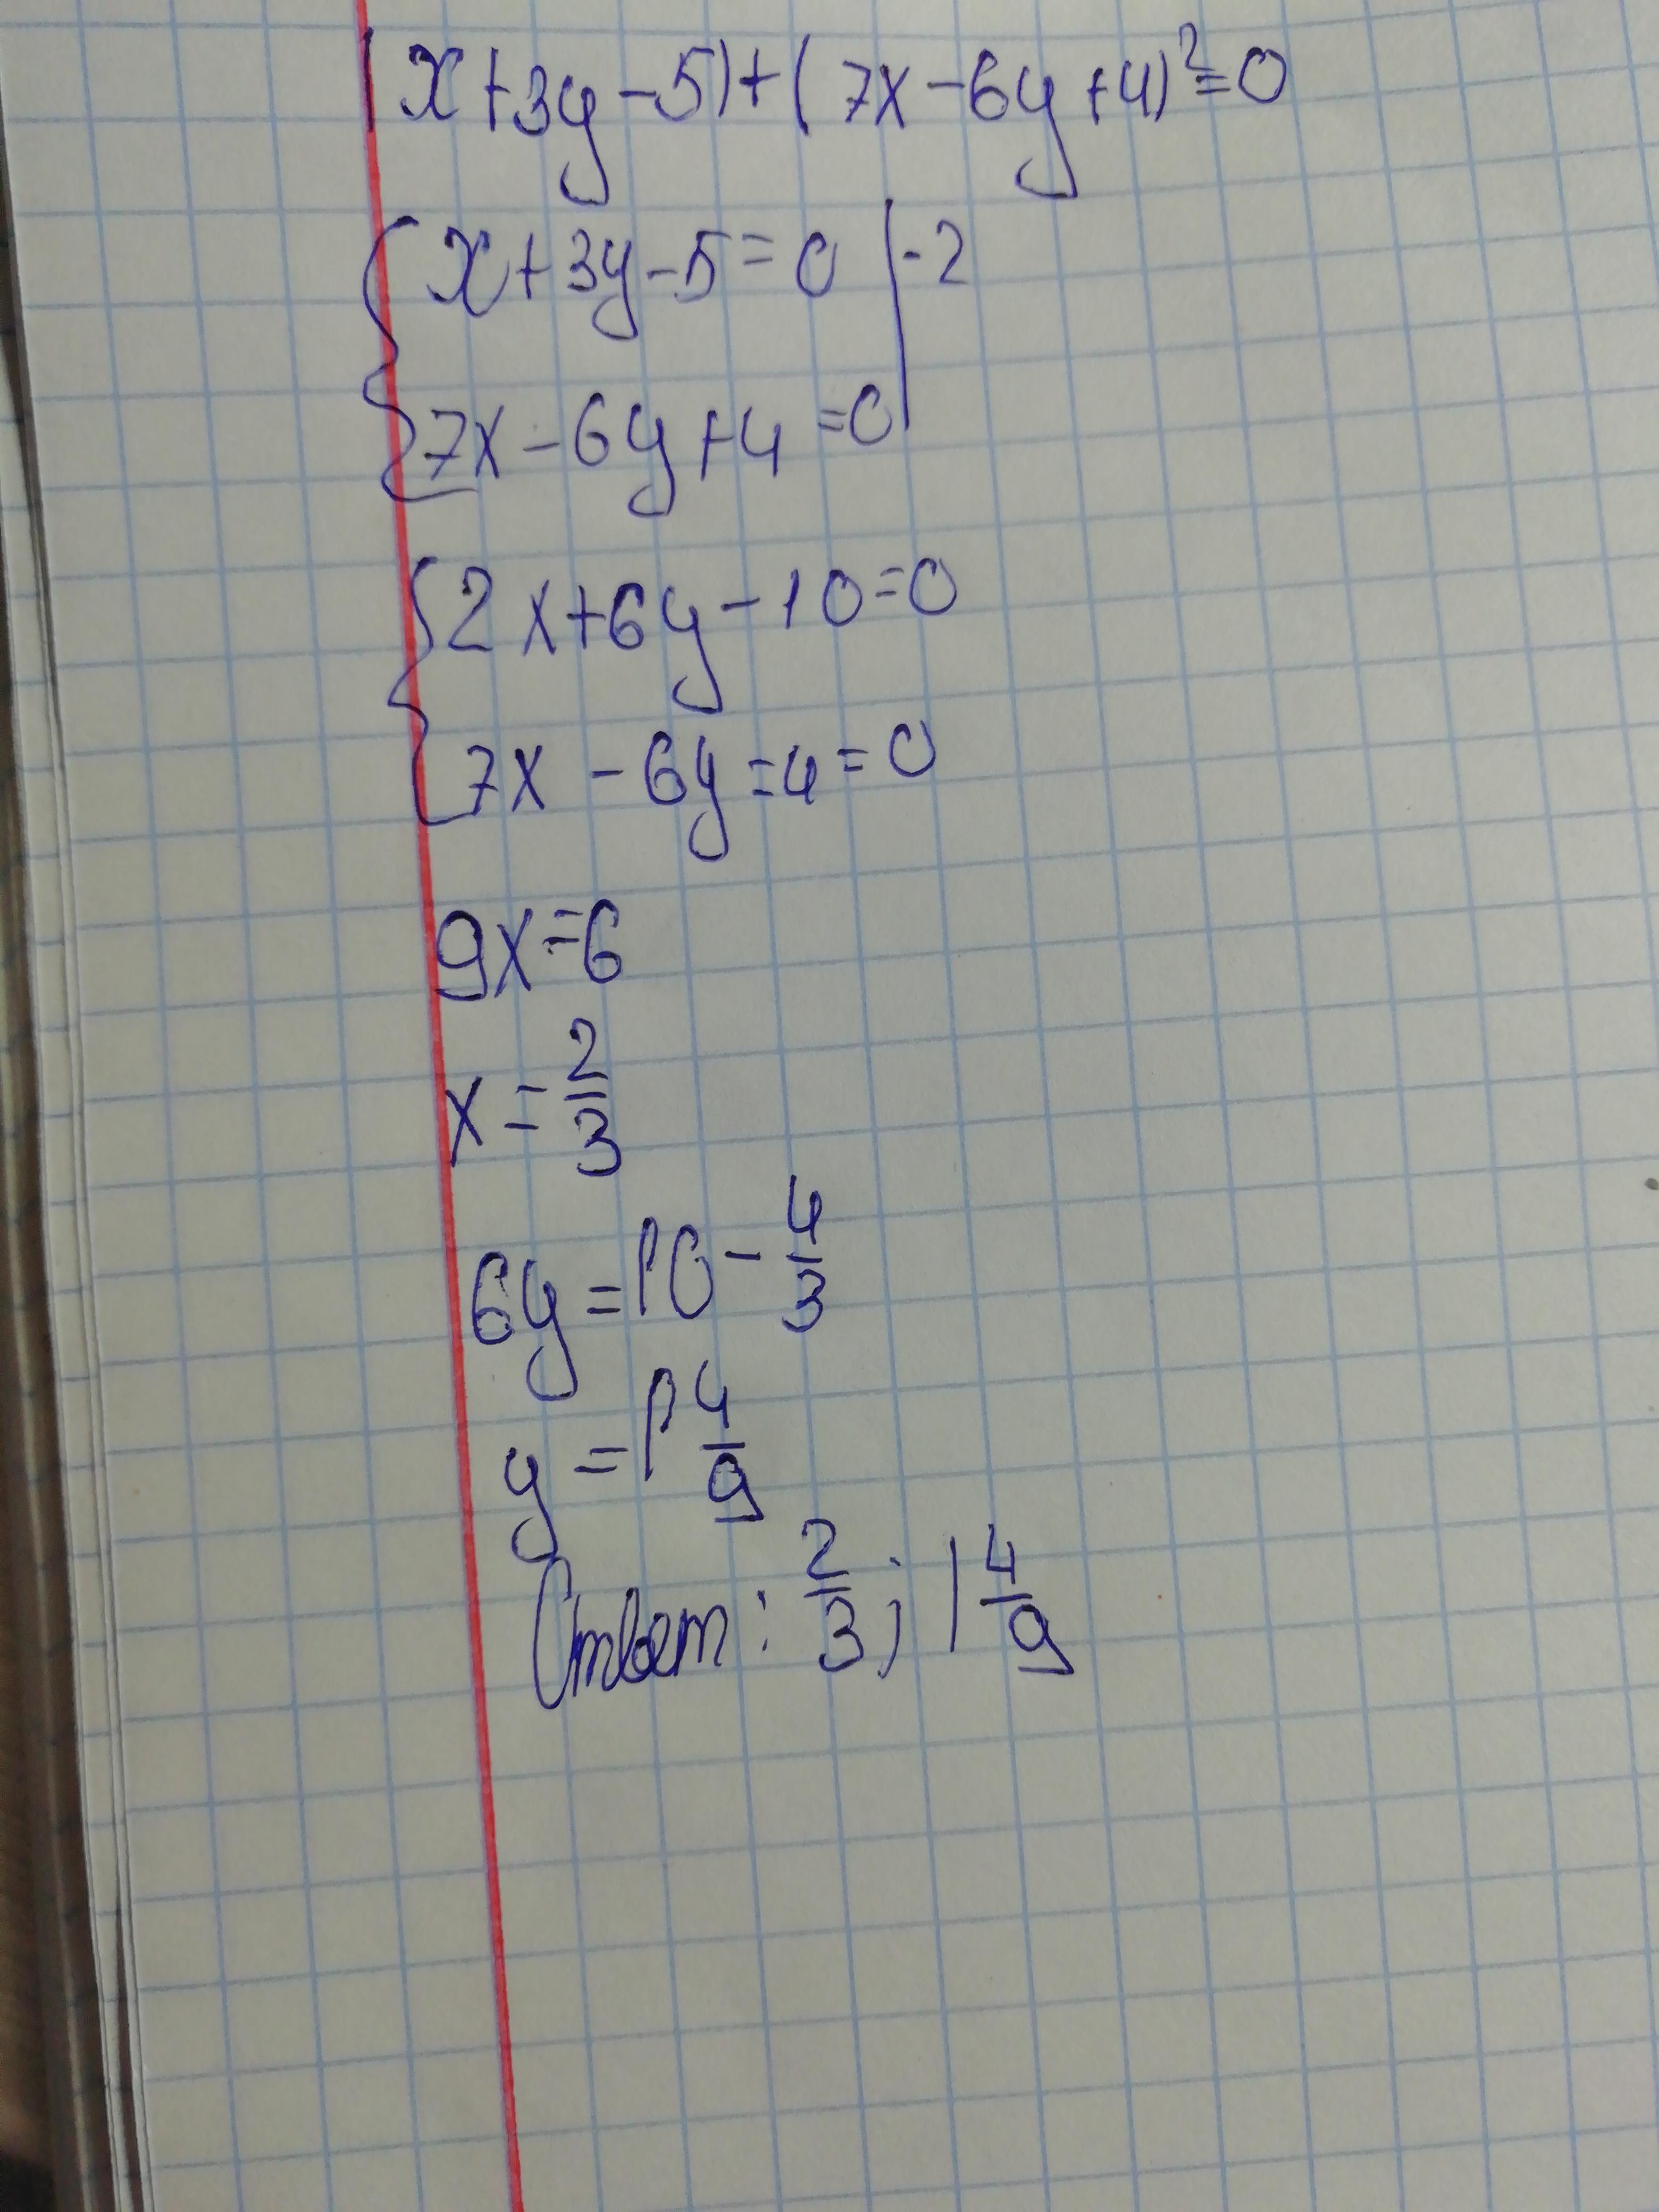 |x+3y-5|+(7x-6y+4)²=0
{x+3y-5=0 |·2
{7x-6y+4=0
{2x+6y-10=0
{7x-6y=4=0
9x=6
x=2/3
6y=10-4/3
y=1 4/9
Ответ: 2/3; 1 4/9